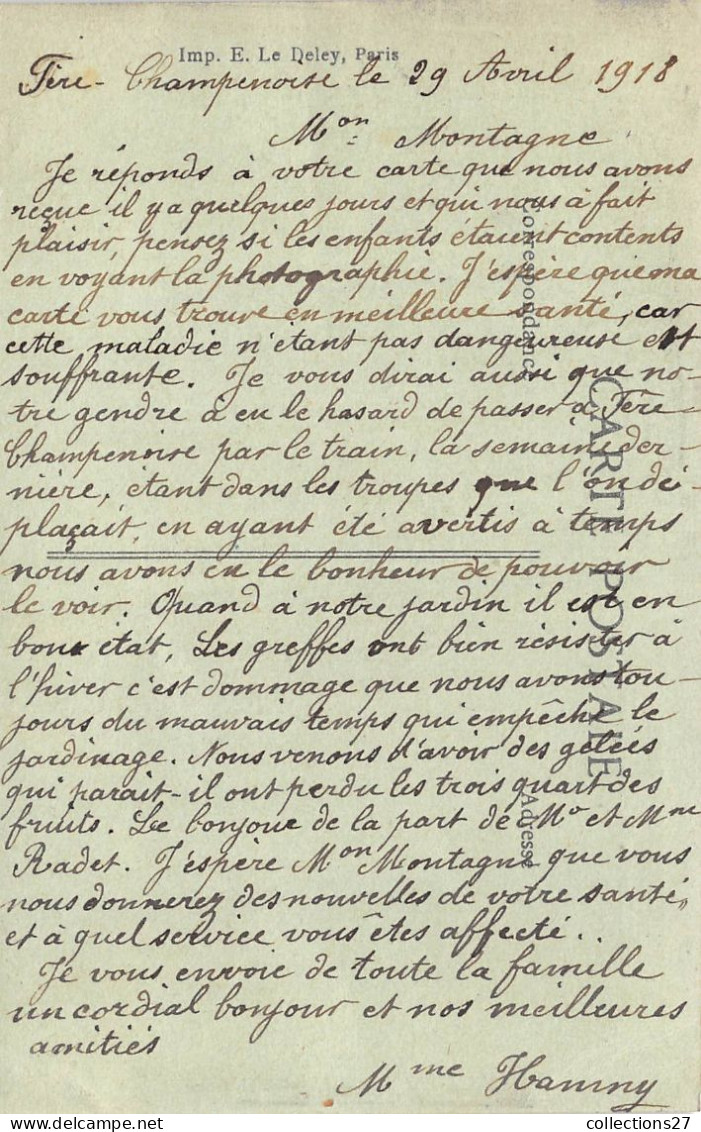 Imp. E. Le Deley, Paris
Fère-Champenoise le 29 Avril 1918
Mon Montagne
Je réponds à votre carte que nous avons
reçue il y a quelques jours et qui nous à fait
plaisir, pensez si les enfants étaient contents
en voyant la photographie. J'espère que ma
carte vous trouve en meilleure santé, car
cette maladie n'étant pas dangeureuse est
souffrante. Je vous dirai aussi que no-
tre gendre à eu le hasard de passer à Fère-
Champenoise par le train, la semaine der-
nière, étant dans les troupes que l'on dé-
plaçait, en ayant été avertis à temps
nous avons eu le bonheur de pouvoir
le voir. Quand à notre jardin il est en
bon état, Les greffes ont bien résister à
l'hiver c'est dommage que nous avons tou-
jours du mauvais temps qui empêche le
jardinage. Nous venons d'avoir des gelées
qui parait-il ont perdu les trois quart des
fruits. Le bonjour de la part de Mr et Mme
Radet. J'espère Mon Montagne que vous
nous donnerez des nouvelles de votre santé,
et à quel service vous êtes affecté..
Je vous envoie de toute la famille
un cordial bonjour et nos meilleures
amitiés
Mme Hanny
Correspondance
CARTE POSTALE
Adresse
collections27